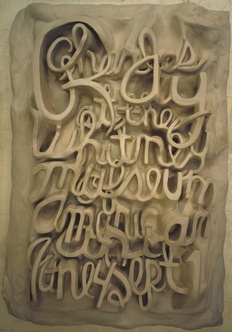 Charles
Ray
at the
whitney
museum
american
June sept